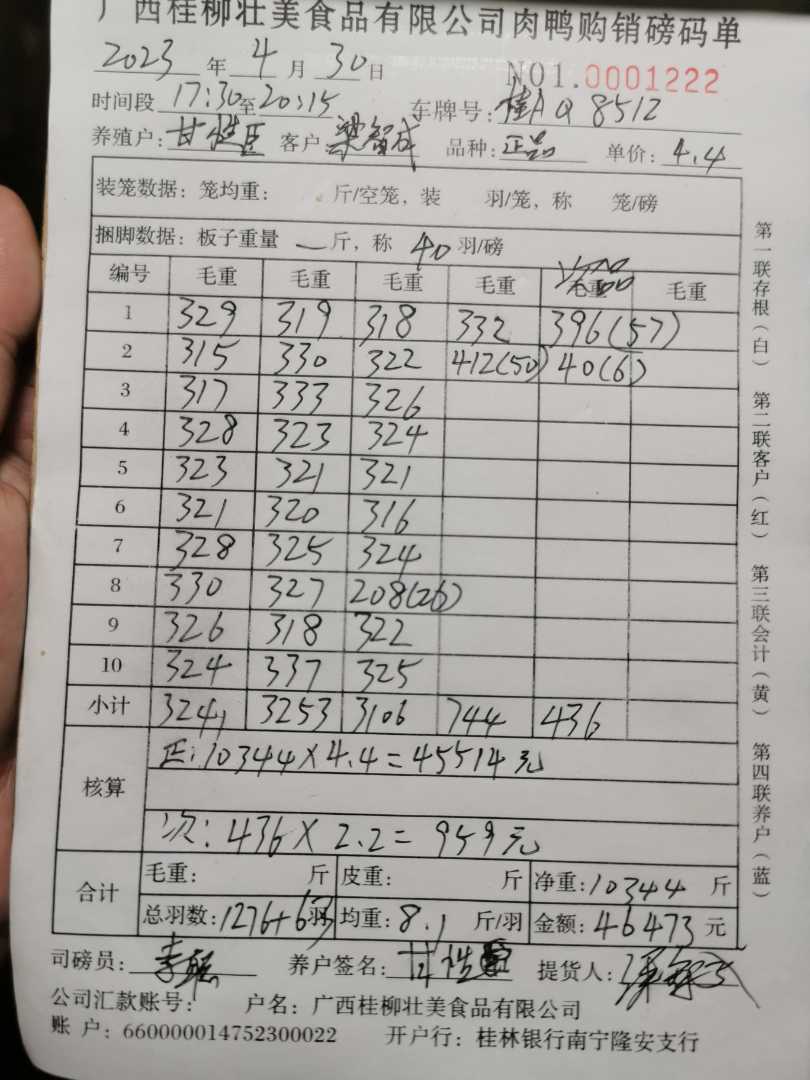 广西桂柳壮美食品有限公司肉鸭购销磅码单
2023 年 4 月 30 日 NO1.0001222
时间段 17:30至20:15 车牌号: 桂A Q8512
养殖户: 甘 客户: 梁智成 品种: 正品 单价: 4.4
装笼数据: 笼均重: 斤/空笼, 装 羽/笼, 称 笼/磅
捆脚数据: 板子重量 — 斤, 称 40 羽/磅
编号 毛重 毛重 毛重 毛重 次品 毛重 毛重
1 329 319 318 332 396(57)
2 315 330 322 412(50) 40(6)
3 317 333 326
4 328 323 324
5 323 321 321
6 321 320 316
7 328 325 324
8 330 327 208(26)
9 326 318 322
10 324 337 325
小计 3241 3253 3106 744 436
核算
正: 10344×4.4=45514元
次: 436×2.2=959元
合计
毛重: 斤 皮重: 斤 净重: 10344 斤
总羽数: 1276+63羽 均重: 8.1 斤/羽 金额: 46473 元
司磅员: 李 养户签名: 甘 提货人: 梁
公司汇款账号: 户名: 广西桂柳壮美食品有限公司
账 户: 660000014752300022 开户行: 桂林银行南宁隆安支行
第一联存根(白) 第二联客户(红) 第三联会计(黄) 第四联养户(蓝)